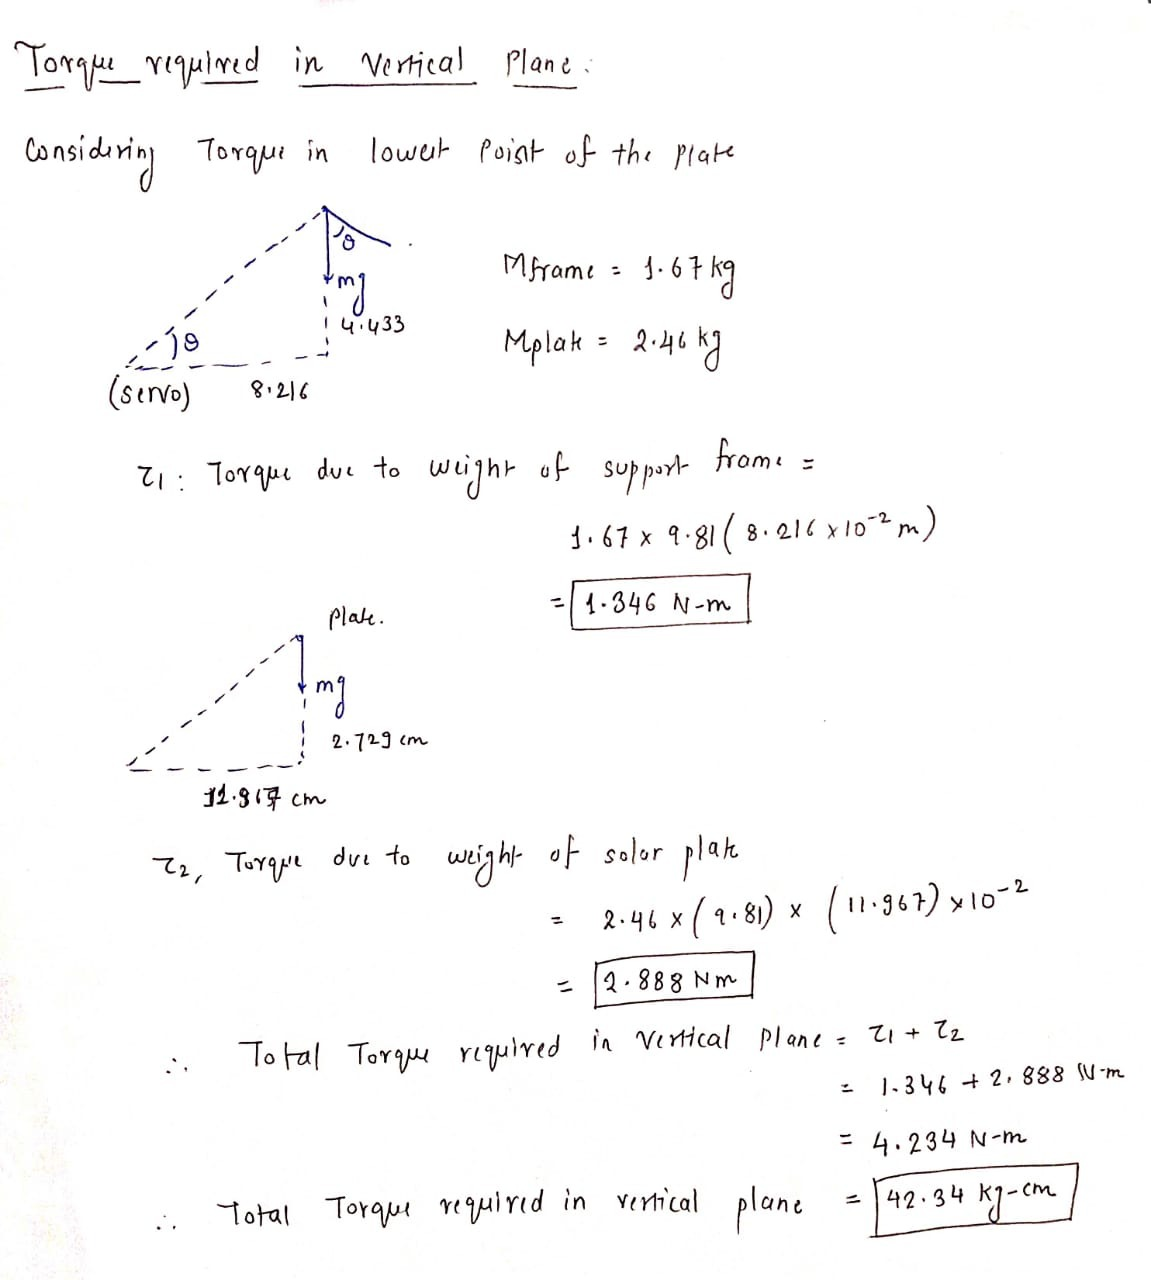 Torque required in Vertical Plane:
Considering Torque in lowest Point of the Plate
θ
mg
4.433
θ
(servo) 8.216
Mframe = 1.67 kg
Mplate = 2.46 kg
τ1: Torque due to weight of support frame =
1.67 x 9.81 ( 8.216 x 10⁻² m)
= 1.346 N-m
Plate.
mg
2.729 cm
11.967 cm
τ2, Torque due to weight of solar plate
= 2.46 x (9.81) x (11.967) x 10⁻²
= 2.888 Nm
∴ Total Torque required in Vertical Plane = τ1 + τ2
= 1.346 + 2.888 N-m
= 4.234 N-m
∴ Total Torque required in vertical plane = 42.34 kg-cm